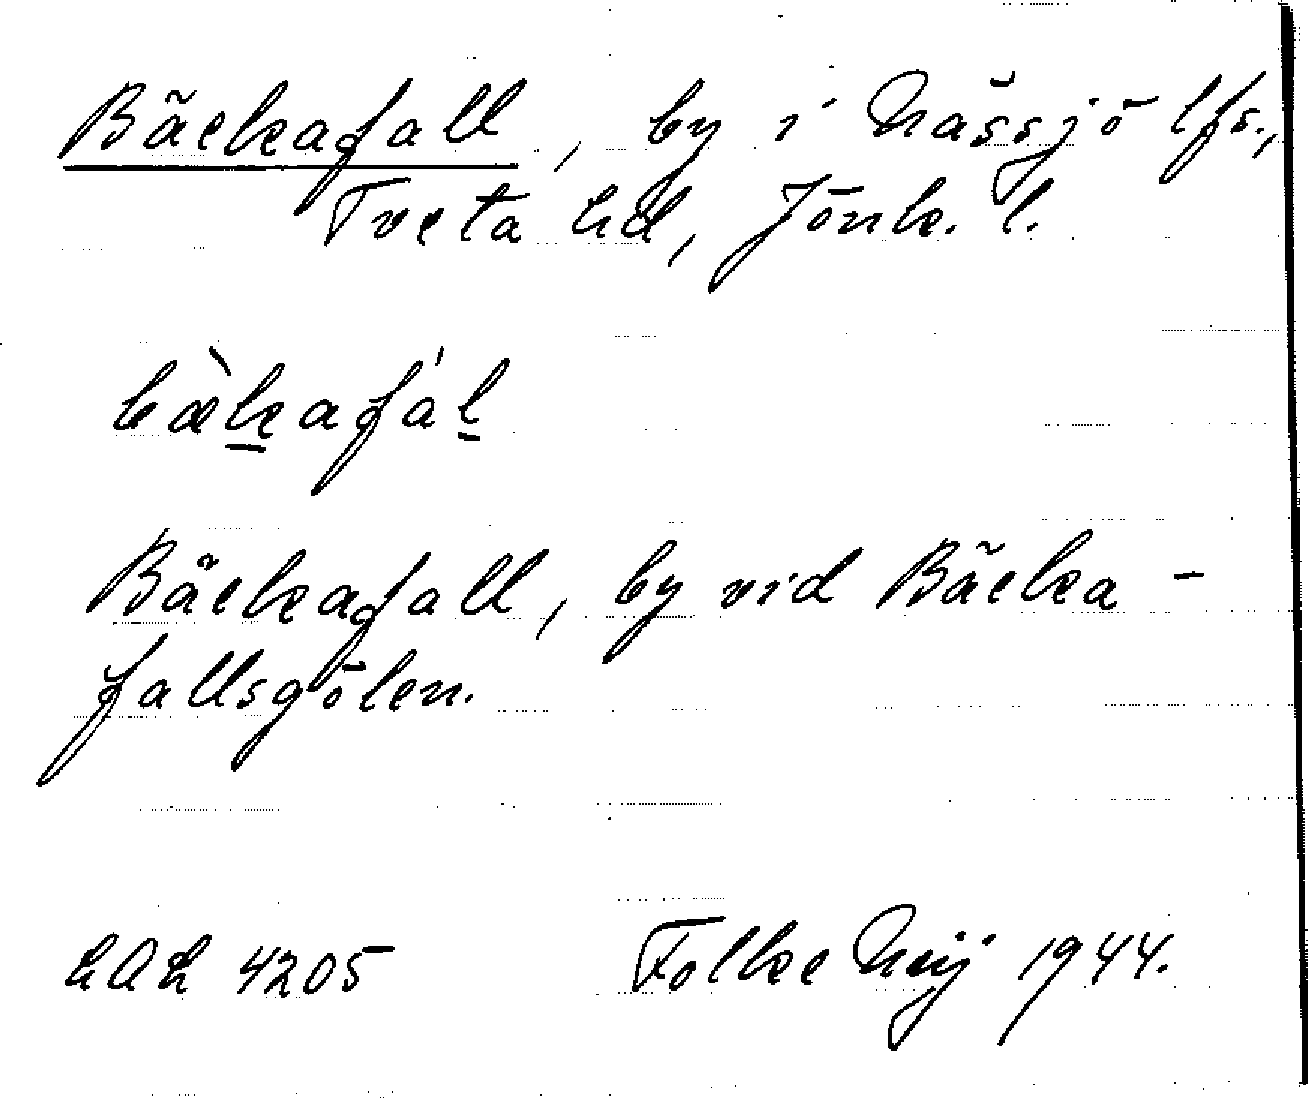 Bäckafall, by i Nässjö lfs.,
Tveta hd, Jönk. l.
bæ̀k̠afál̠
Bäckafall, by vid Bäcka-
fallsgölen.
LAL 4205 Folke Meij 1944.